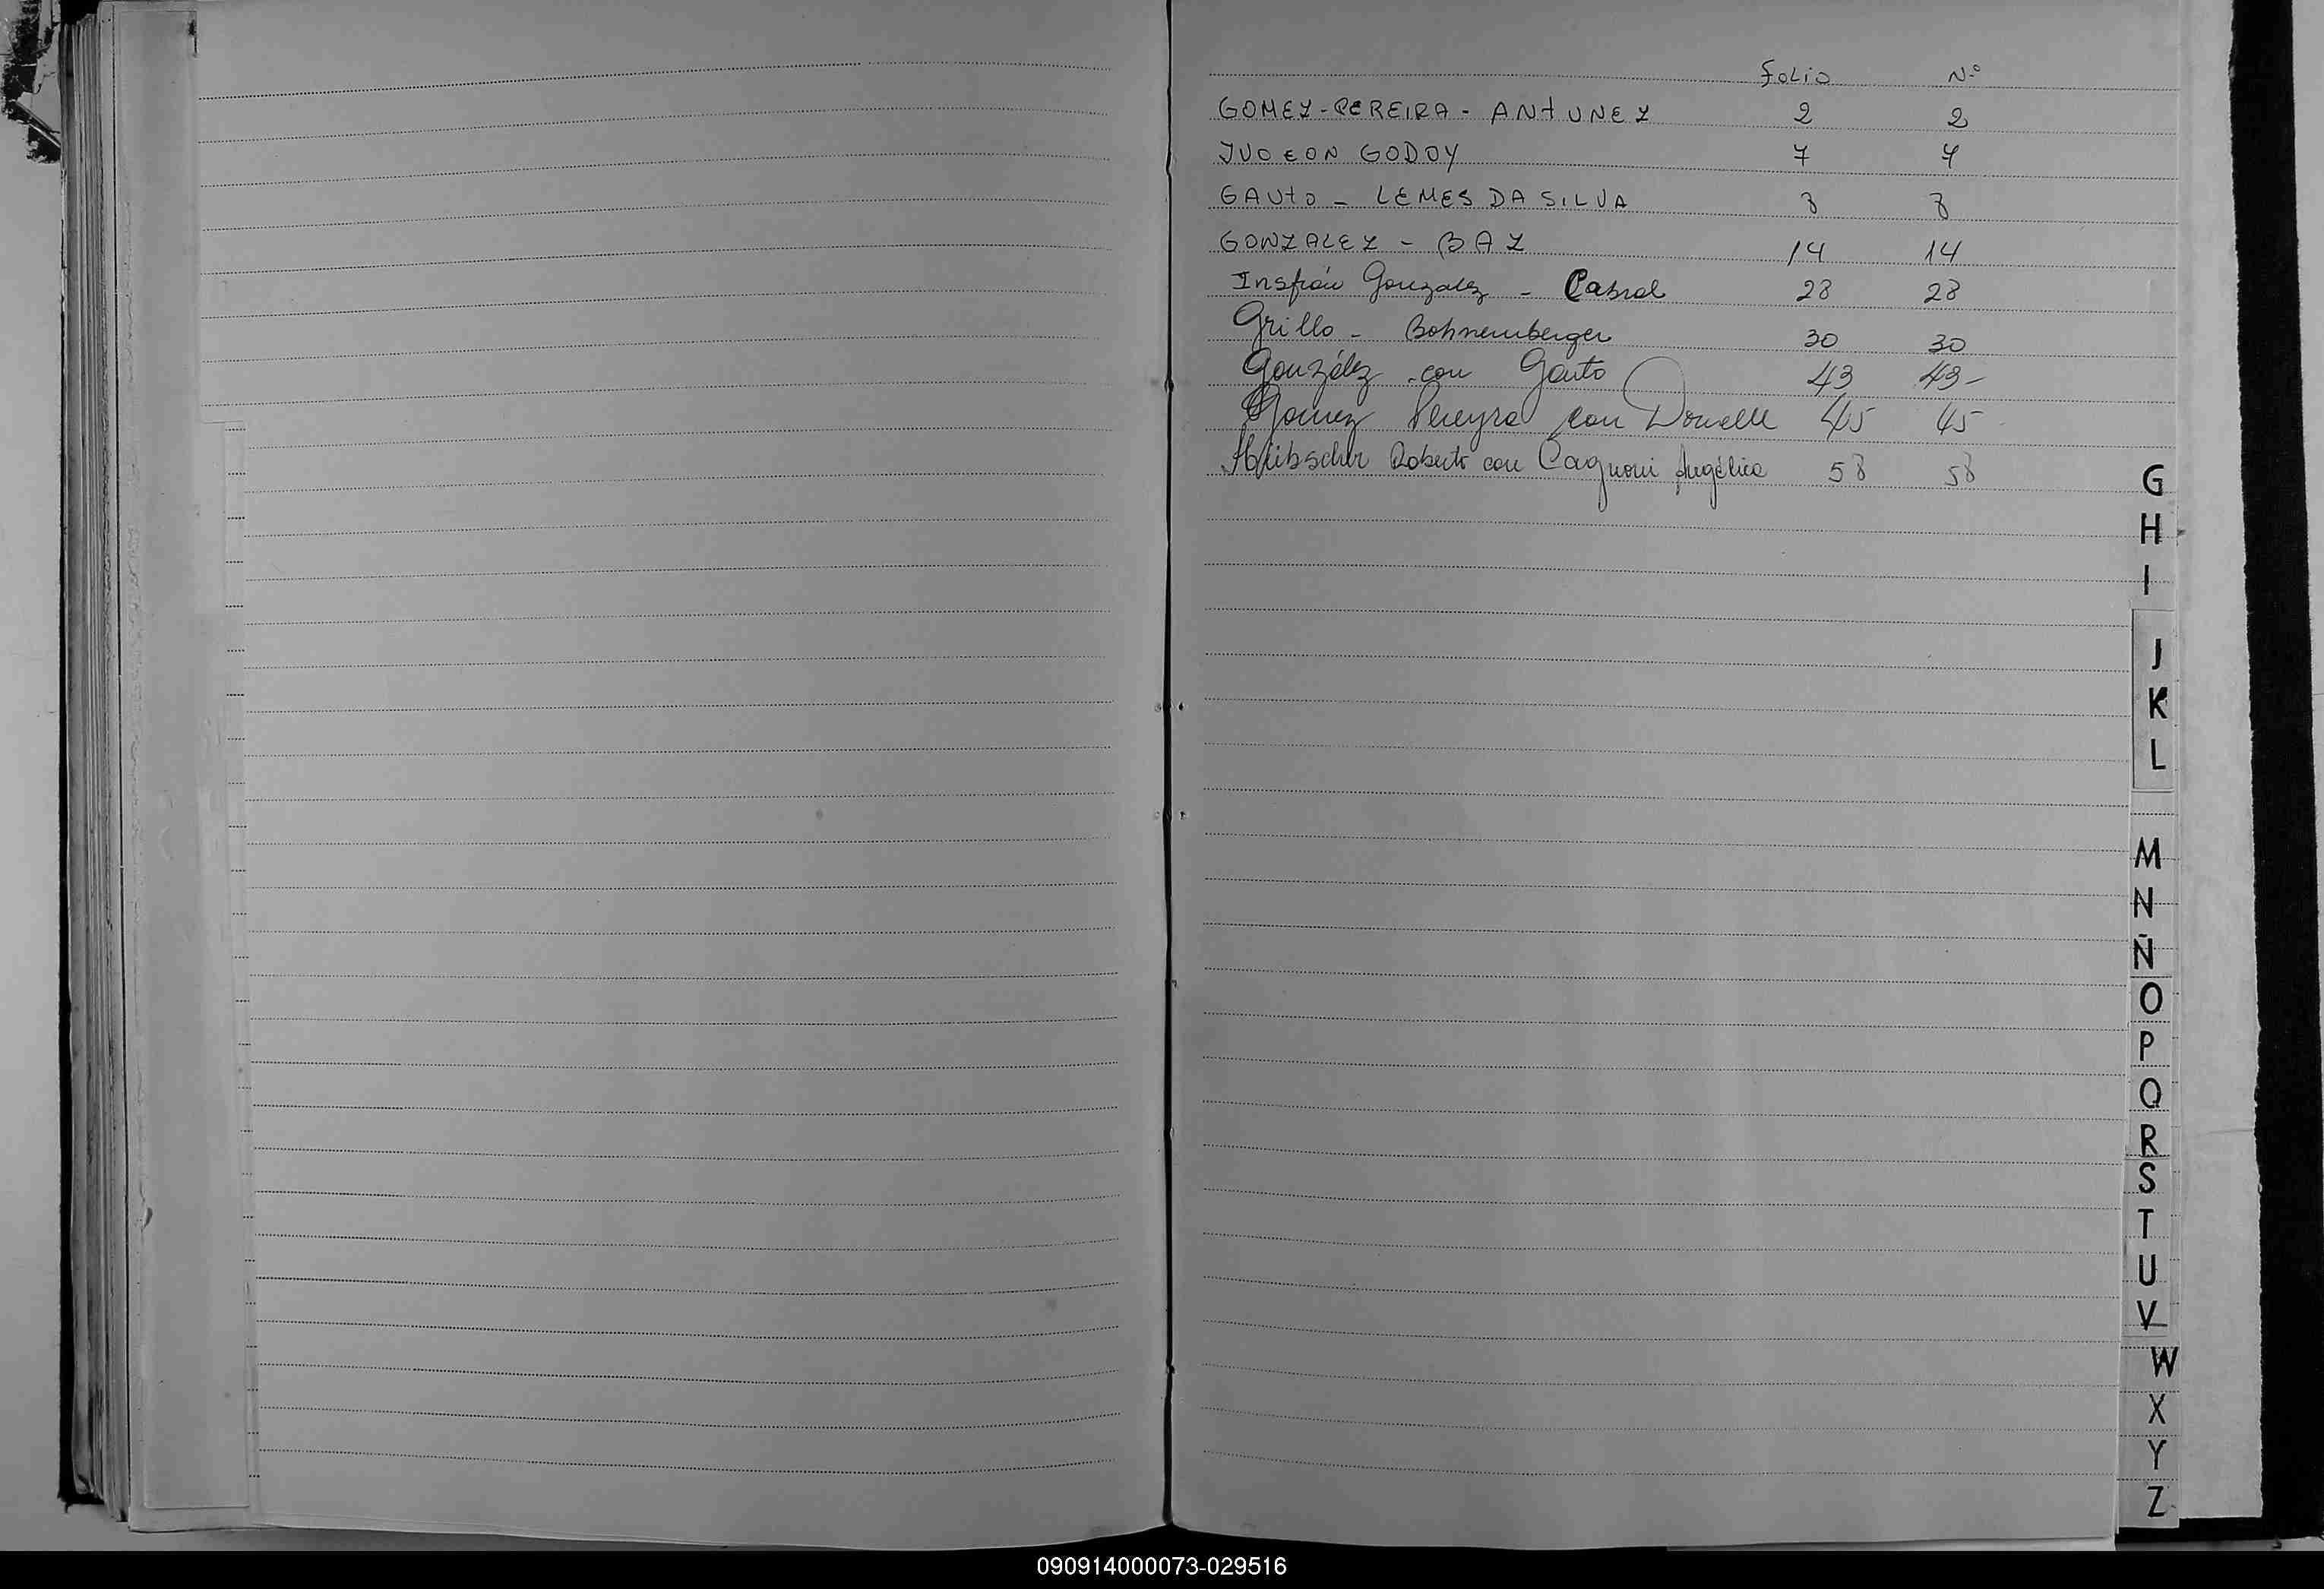 Folio Nº
GOMEZ-PEREIRA - ANTUNEZ 2 2
GODOY 7 7
GAUTO - LEMES DA SILVA 8 8
GONZALEZ - BAZ 14 14
Insfrán Gonzalez - Cabral 28 28
Grillo - Bohnemberger 30 30
González con Gauto 43 43-
Gomez Pereyra con 45 45
Hübscher Roberto con Cagnoni Angélica 58 58
G
H
I
J
K
L
M
N
Ñ
O
P
Q
R
S
T
U
V
W
X
Y
Z
090914000073-029516